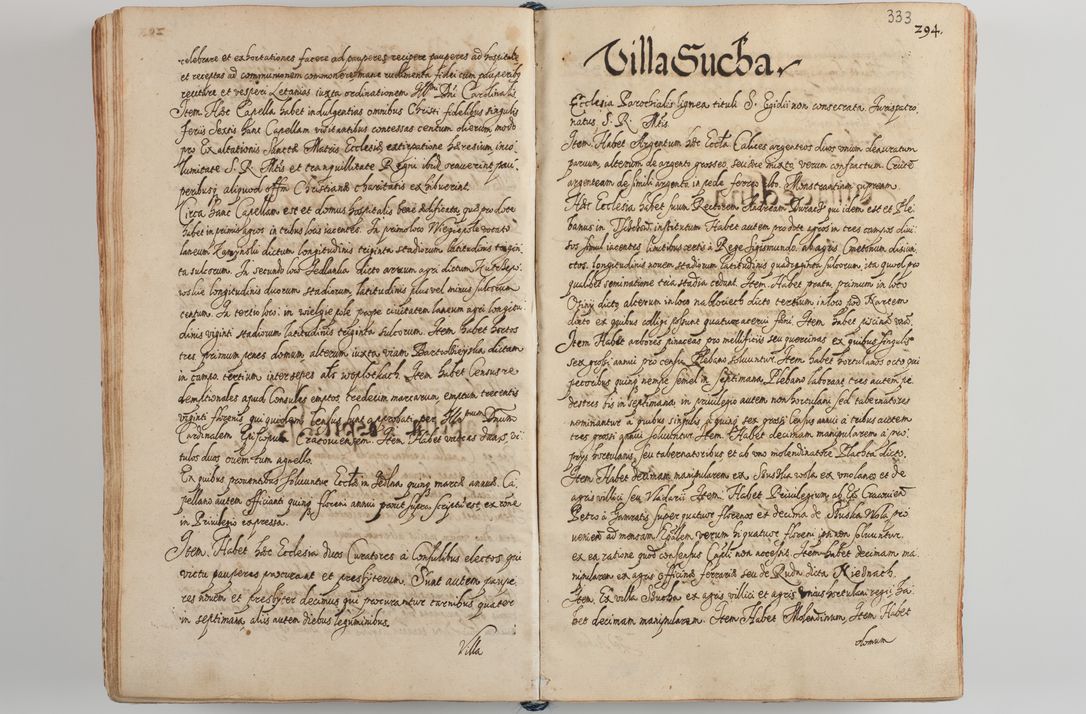 celebrare et exhortationes facere ad pauperes recipere pauperes ad hospitale
et receptos ad communionem commonere mane rudimenta fidei cum pauperibus
recitare et vesperi Letanias iuxta ordinationem Illmi Dni Cardinalis
Item Haec Capella habet indulgentias omnibus Christi fidelibus singulis
feriis sextis hanc Capellam visitantibus concessas centum dierum, modo
pro Exaltationis Sanctae Matris Ecclesiae extirpatione haeresium, inco
lumitate S. R. Mtis et tranquillitate Regni ibid venerint, pau
peribusq aliquod offm Christianae charitatis exhibuerint.
Circa hanc Capellam est et domus hospitalis bene aedificata, quae pro dote
habet in primis agros in tribus locis iacentes. In primo loco Niepiąpole vocato
laneum Kamynski dictum longitudinis triginta stadiorum latitudinis trigin
ta sulcorum. In secundo loco Jedlanka dicto arvum agri dictum
wskie longitudinis duorum stadiorum, latitudinis plus vel minus sulcorum
centum. In tertio loco in wielgie pole prope civitatem laneum agri longitu
dinis viginti stadiorum latitudinis triginta sulcorum. Item habet hortos
tres primum penes domum, alterum iuxta viam Bartodzieyska dictam
in campo, tertium inter sepes als woplotkach. Item habet Census re
demptionales apud Consules emptos tredecim marcarum, emptum trecentis
viginti florenis qui quidem Census est approbatus per Illmum Dnum
Cardinalem Episcopum Cracoviensem. Item Habet vaccas duas vi
tulos duos ovem cum agnello.
Ex quibus proventibus solvuntur Ecclae in Jedlna quinq marcae annuae. Ca
pellano autem officianti quinq floreni annui prout supra scriptum est, ex rone
in Privilegio expressa.
Item Habet haec Ecclesia duos Curatores a Consulibus electos, qui
victu pauperes procurant et presbyterum. Sunt autem paupe
res novem et presbyter decimus qui procurantur carnibus quater
in septimana aliis autem diebus leguminibus.
Villa
333
294.
Villa Sucha
Ecclesia Parochialis lignea tituli S. Egidii non consecrata Iurispatro
natus S. R. Mtis.
Item Habet Argentum haec Eccla Calices argenteos duos unum deauratum
parvum, alterum de argento grosseo, seu aere mixto verum confractum. Crucem
argenteam de simili argento in pede ferreo albo. Monstrantiam cupream.
Haec Ecclesia habet suum Rectorem Andream qui idem est et Ple
banus in institutum Habet autem pro dote agros in tres campos divi
sos simul iacentes limitibus certis a Rege Sigismundo ab agris Cmethonum disiun
ctos, longitudinis novem stadiorum latitudinis quadraginta sulcorum, ita quod pro
qualibet seminatione tria stadia cedant. Item Habet prata, primum in loco
Osiny dicto alterum in loco na blociech dicto tertium in loco pod Karzem
dicto ex quibus colligi possunt quatuor acervi foeni. Item habet piscinam unam.
Item Habet arbores pinaceas pro mellificiis seu quercinas ex quibus singulis
sex grossi annui pro censu Plebano solvuntur. Item habet hortulanos octo qui
pecoribus quinq nempe semel in septimana Plebano laborant tres autem pe
destres bis in septimana, in privilegio autem non hortulani sed tabernatores
nominantur a quibus singulis a quinq sex grossi Census annui a tribus autem
tres grossi annui solvuntur. Item Habet decimam manipularem a prae
fatis hortulanis, seu tabernatoribus et ab uno molendinatore Plachta dicto.
Item Habet decimam manipularem ex Słuska wola ex uno laneo et de
agris villici seu Vladarii. Item Habet Privilegium ab Epo Cracoviensi
Petro a Gamratis super quatuor florenos ex decima de Słuska Wola, pro
veniente ad mensam Epalem verum hi quatuor floreni ipsi non solvuntur
ex ea ratione quod consensus Capli non accessit. Item habet decimam ma
nipularem ex agris officinae ferrariae seu de Ruda dicta Niednach.
Item Ex villa Sucha ex agris villici et agris unius hortulani regii ha
bet decimam manipularem. Item Habet Molendinum, Item Habet
domum